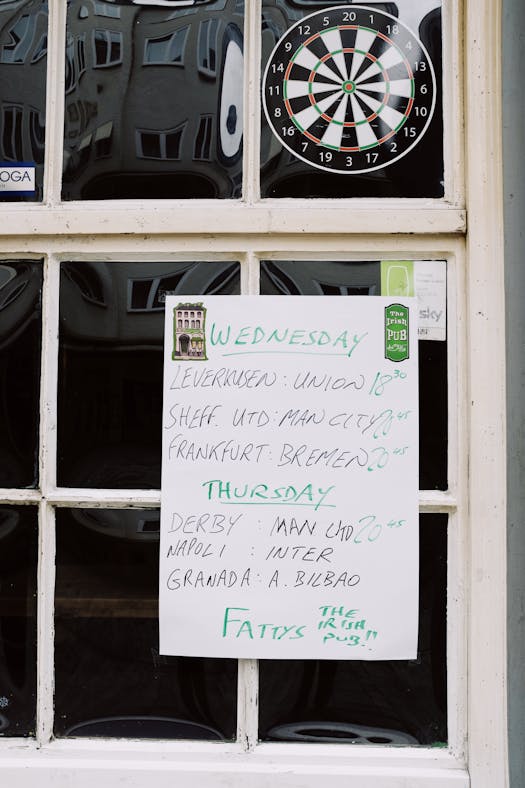 5 20 1
12 18
9 4
14 13
11 6
8 10
16 15
7 2
19 3 17
OGA
sky
The
Irish
PUB
WEDNESDAY
LEVERKUSEN : UNION 18 30
SHEFF. UTD : MAN CITY 20 45
FRANKFURT : BREMEN 20 45
THURSDAY
DERBY : MAN UTD 20 45
NAPOLI : INTER
GRANADA : A. BILBAO
FATTYS THE
IRISH
PUB!!